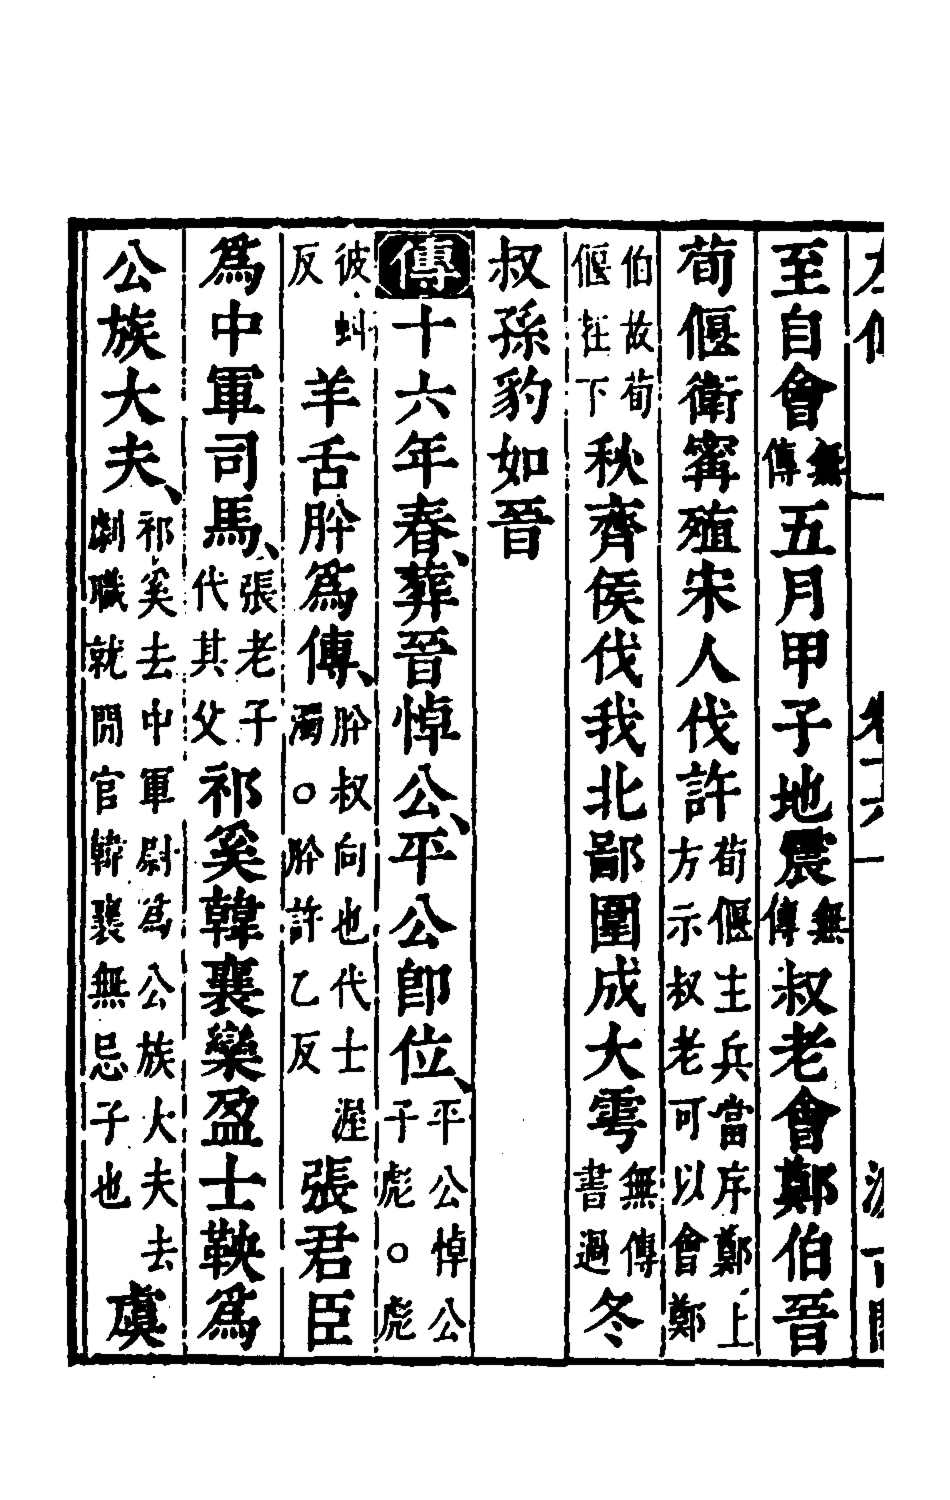 至自會無傳五月甲子地震無傳叔老會鄭伯晉
荀偃衛寗殖宋人伐許荀偃主兵當序鄭上方示叔老可以會鄭
伯故荀偃在下秋齊侯伐我北鄙圍成大雩無傳書過冬
叔孫豹如晉
傳十六年春、葬晉悼公、平公卽位、平公悼公子彪○彪
彼蚪反羊舌肸爲傳、肸叔向也代士渥濁○肸許乙反張君臣
爲中軍司馬、張老子代其父祁奚韓襄欒盈士鞅爲
公族大夫、祁奚去中軍尉爲公族大夫去劇職就閒官韓襄無忌子也虞